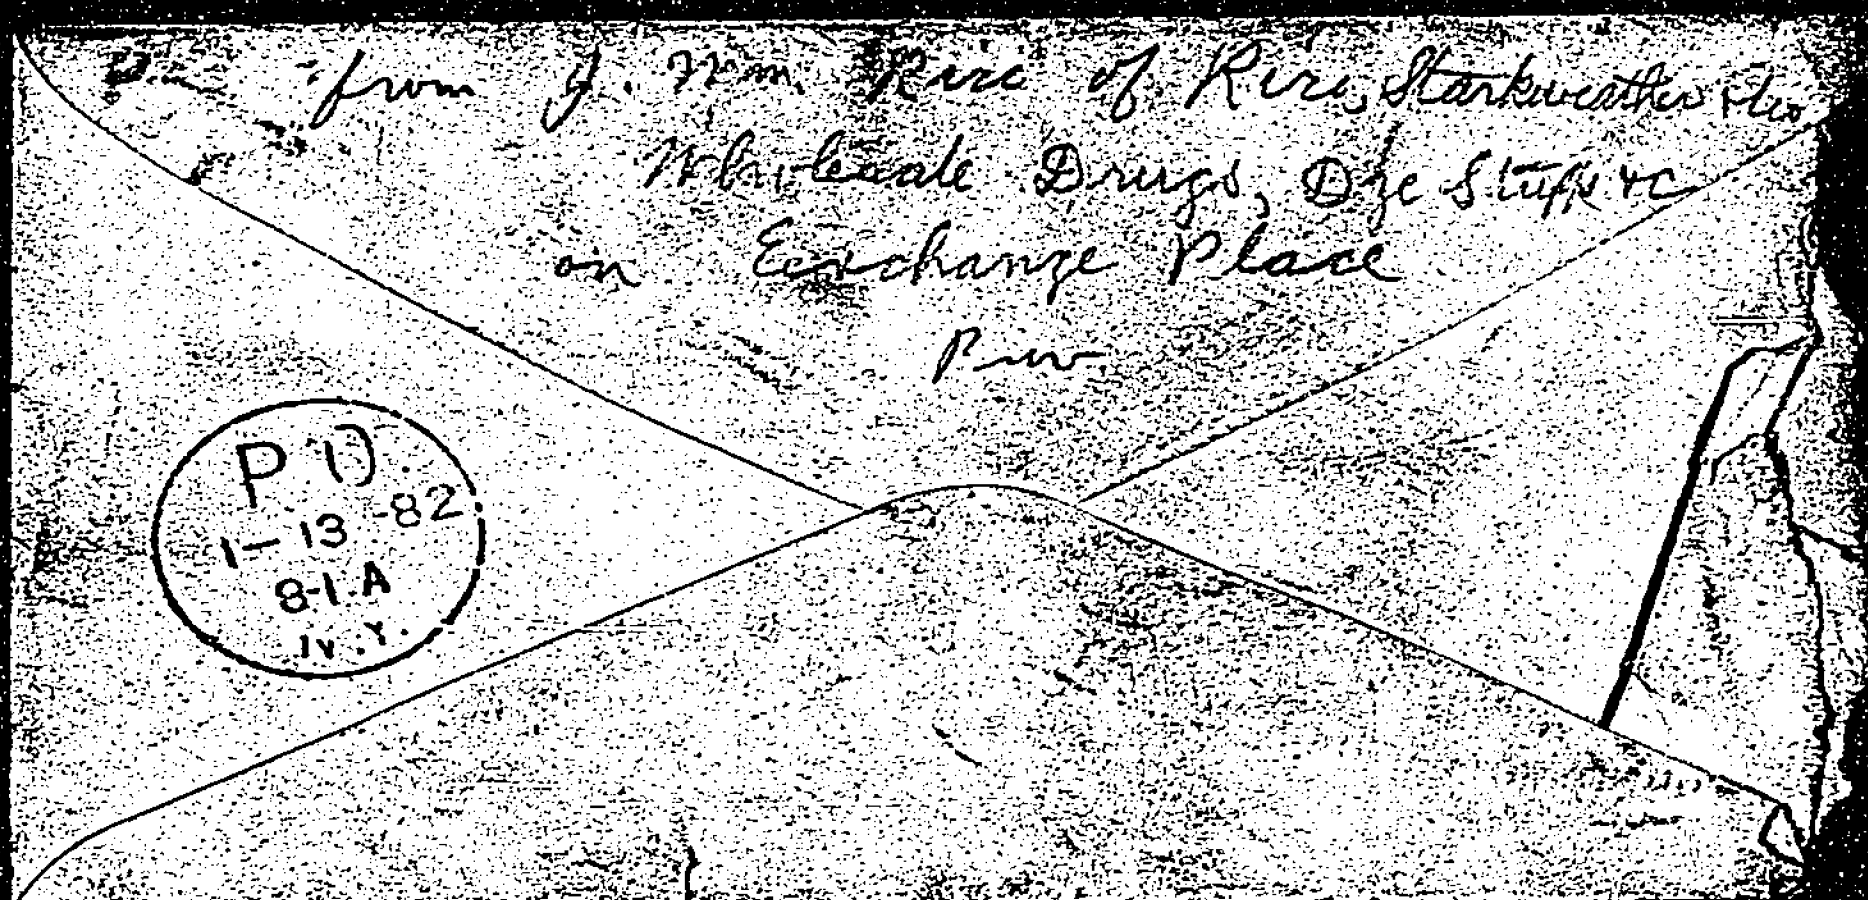 from J. Wm. Rice of Rice, Starkweather & Co
Wholesale Drugs, Dye Stuffs &c
on Exchange Place
Prov.
P O.
1-13-82
8-1.A
N.Y.